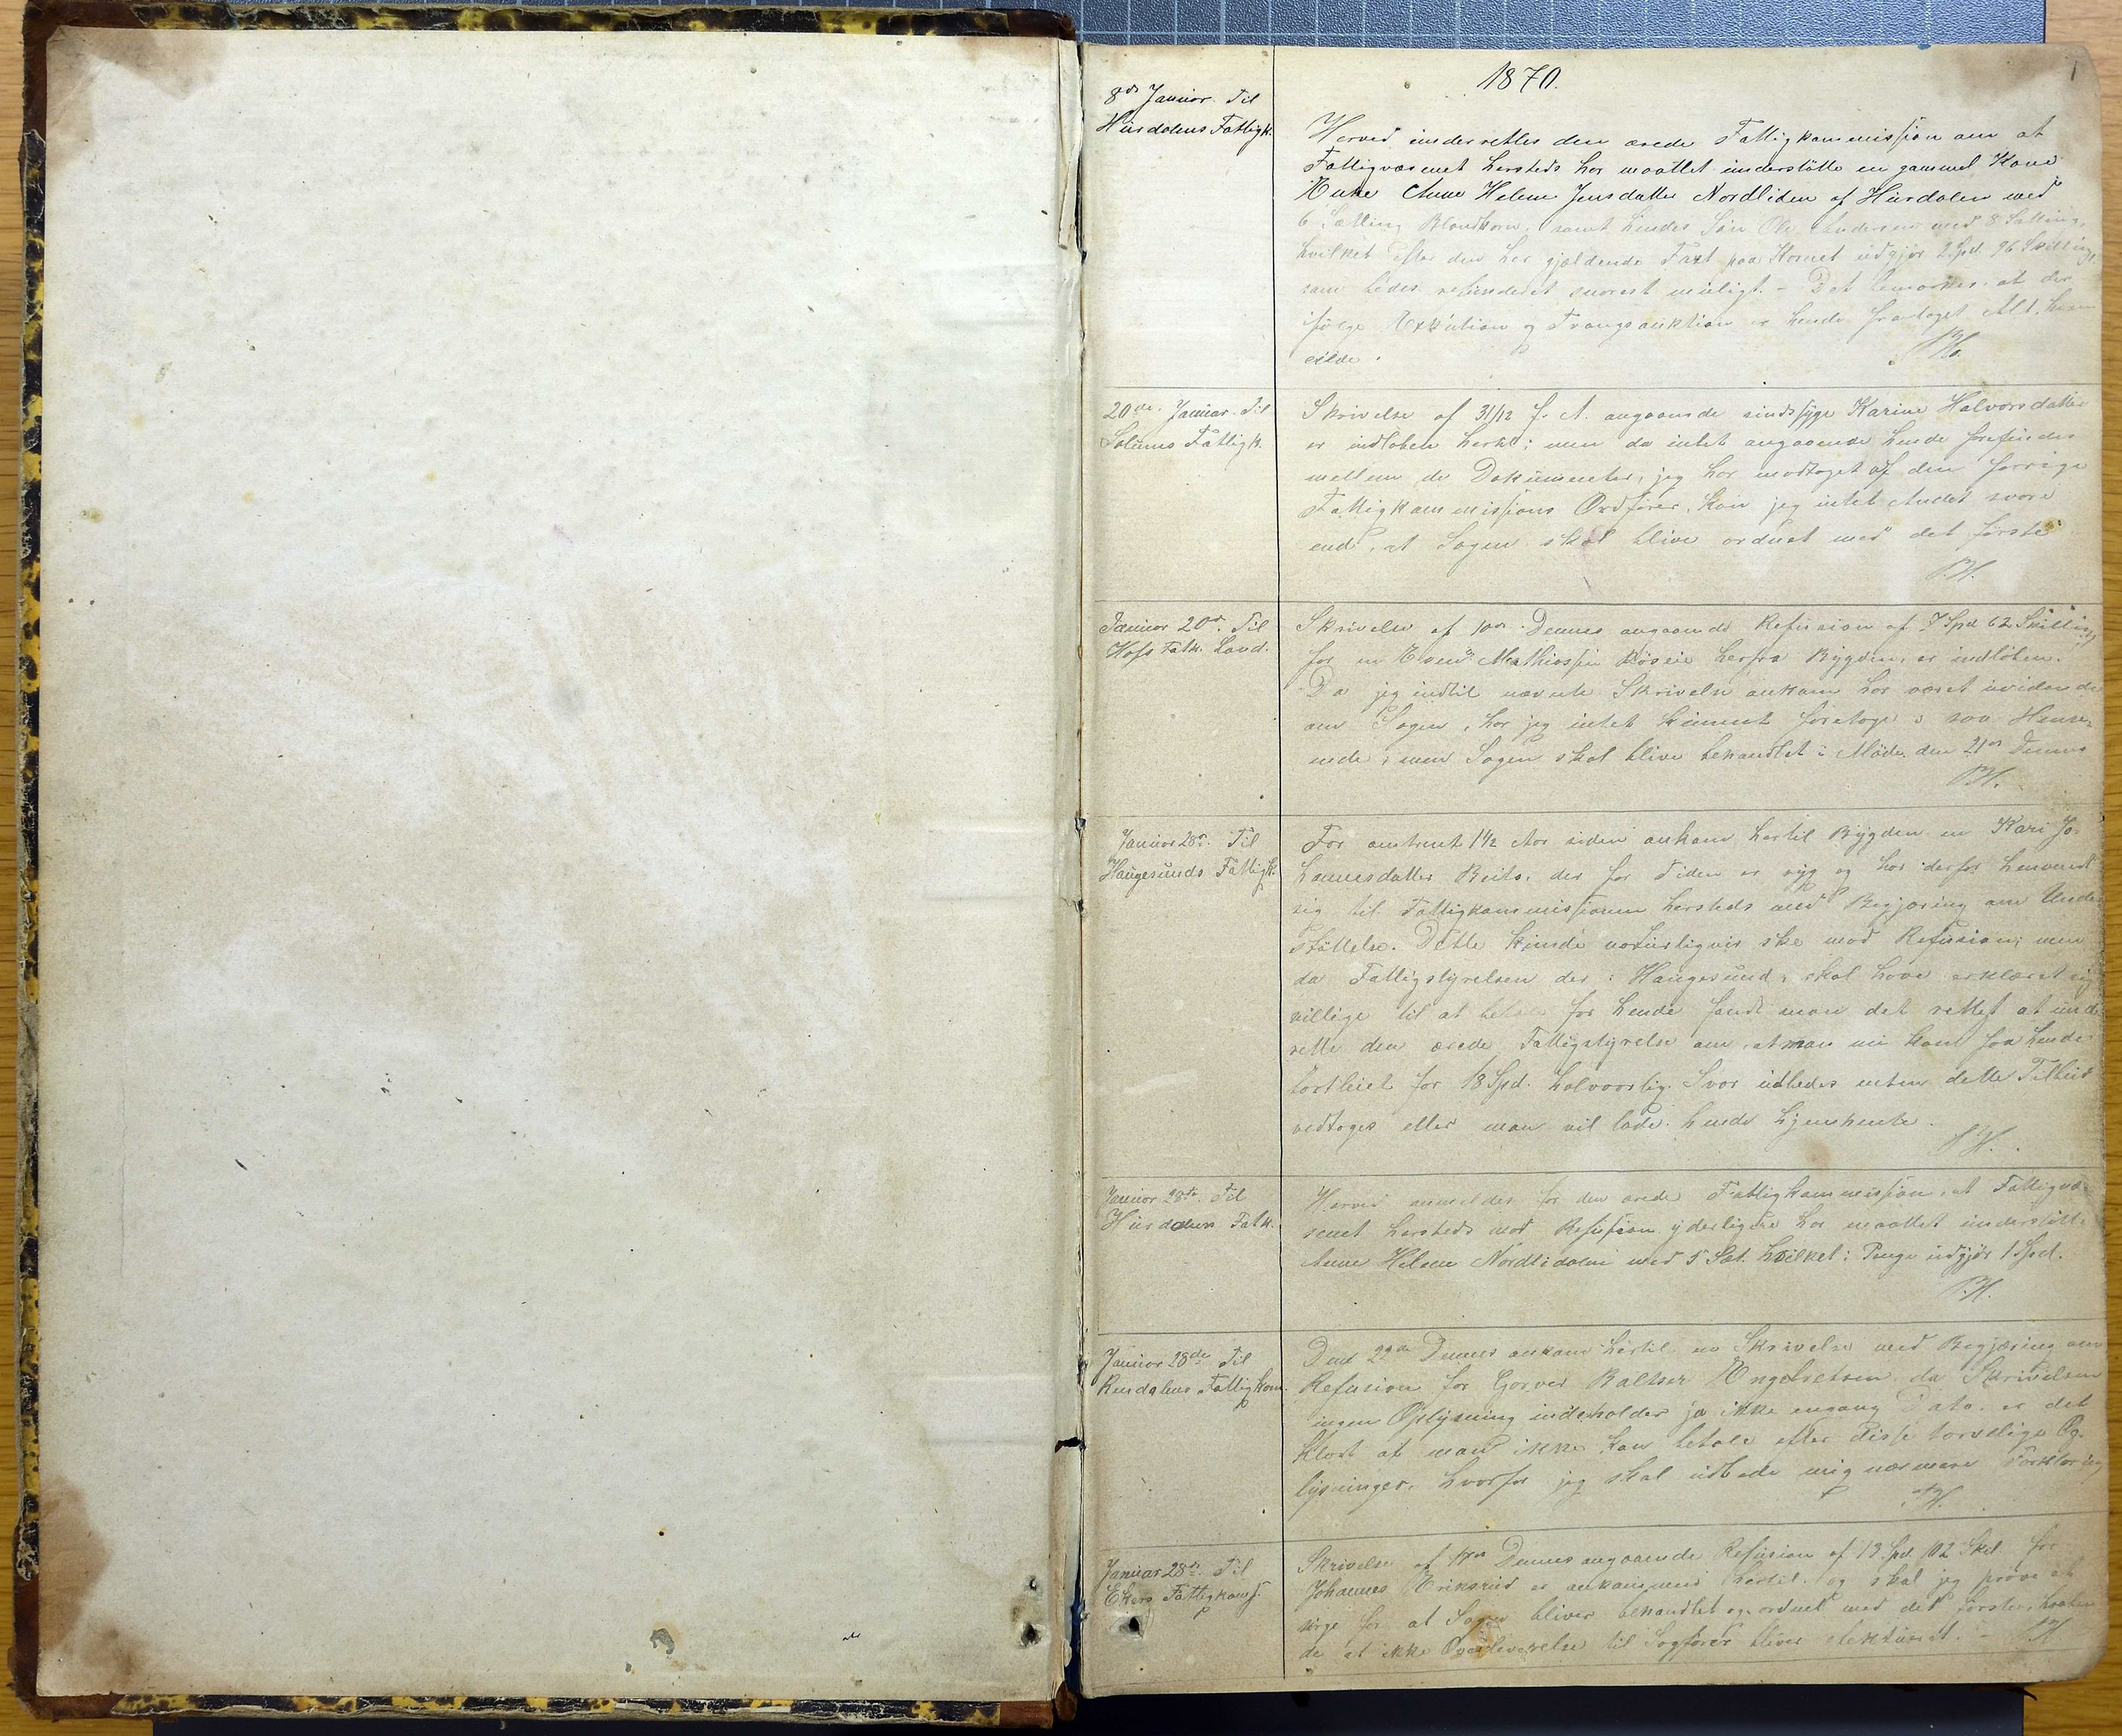 1
1870.
8de Januar. Til
Hurdalens Fattigk.
Herved underrettes den ærede Fattigkommission om at
Fattigvæsenet hersteds har maattet understøtte en gammel Kone
Enke Anne Helene Jensdatter Nordliden af Hurdalen med
6 Sætting Blandkorn, samt hendes Søn Ole Andersen med 8 Sætting,
hvilket efter den her gjældende Taxt paa Kornet udgjør 2 Spd. 96 Skilling,
som bedes refunderet snarest muligt. – Det bemærkes at der
ifølge Exkution og Tvangsauktion er hende frataget Alt, hun
eiede.
P.H.
20de Januar. Til
Solums Fattigk.
Skrivelse af 31/12 f. A. angaaende sindssyge Karine Halvorsdatter
er indløben hertil; men da intet angaaende hende forefindes
mellem de Dokumenter, jeg har modtaget af den forrige
Fattigkommissions Ordfører, kan jeg intet Andet svare
end, at Sagen skal blive ordnet med det første
P.H.
Januar 20de. Til
Hofs Fatk. Land.
Skrivelse af 10de Dennes angaaende Refusion af 7 Spd 62 Skilling
for en Even Mathiassen herfra Bygden, er indløben.
Da jeg indtil nævnte Skrivelse ankom har været uvidende
om Sagen, har jeg intet kunnet foretage i saa Hense-
ende, men Sagen skal blive behandlet i Møde den 21de Dennes
P.H.
Januar 28de. Til
Haugesunds Fattigk.
For omtrent 1½ Aar siden ankom hertil Bygden en Kari Jo-
hannesdatter Beito, der for Tiden er syg og har derfor henvendt
sig til Fattigkommissionen hersteds med Begjæring om Under-
støttelse. Dette kunde naturligvis ske mod Refusion; men
da Fattigstyrelsen der i Haugesund, skal have erklæret sig
villige til at betale for hende fandt man det rettest at under-
rette den ærede Fattigstyrelse om, at man nu kan faa hende
bortleiet for 18 Spd. halvaarlig. Svar udbedes enten dette Tilbud
vedtages eller man vil lade hende hjemhente.
P.H.
Januar 28de. Til
Hurdalen Fatk.
Herved anmeldes for den ærede Fattigkommission, at Fattigvæ-
senet hersteds mod Refusion yderligere har maattet understøtte
Anne Helene Nordlidalen med 5 Sæt. hvilket i Penge udgjør 1 Spd.
P.H.
Januar 28de Til
Rendalens Fattigkom.
Den 22de Dennes ankom hertil en Skrivelse med Begjæring om
Refusion for Garver Baltser Engebretsen, da Skrivelsen
ingen Oplysning indeholder ja ikke engang Dato, er det
klart at man ikke kan betale efter disse tarvelige Op-
lysninger, hvorfor jeg skal udbede mig nærmere Forklaring
P.H.
Januar 28de. Til
Ekers Fattigkoms.
Skrivelse af Dennes angaaende Refusion af 13 Spd 102 Skil for
Johannes Eriksrud er ankommen hertil og skal jeg prøve at
sørge for at Sagen bliver behandlet og ordnet med det første,
de at ikke Overleverelse til Sagfører bliver. – P.H